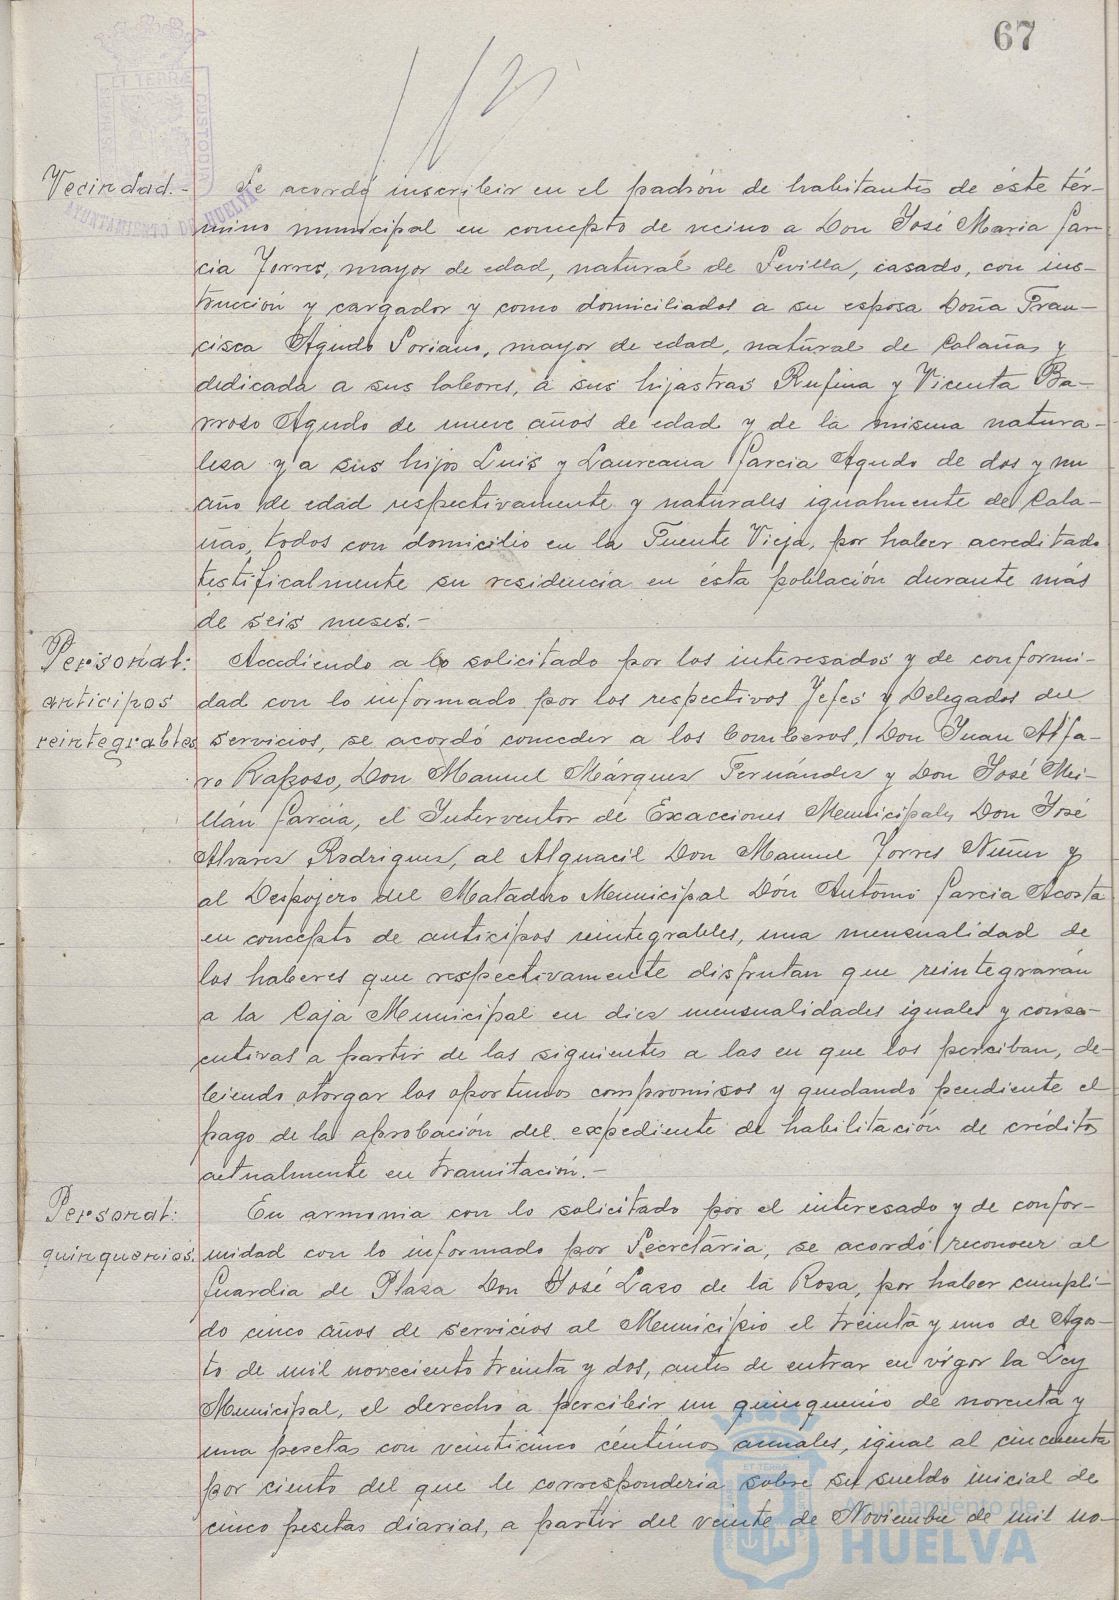 67
Vecindad.- Se acordó inscribir en el padrón de habitantes de éste tér-
mino municipal en concepto de vecino a Don José Maria Gar-
cia Torres, mayor de edad, natural de Sevilla, casado, con ins-
trucción y cargador y como domiciliados a su esposa Doña Fran-
cisca Agudo Soriano, mayor de edad, natural de Calañas y
dedicada a sus labores, a sus hijastras Rufina y Vicenta Ba-
rroso Agudo de nueve años de edad y de la misma natura-
leza y a sus hijos Luis y Laureana Garcia Agudo de dos y un
año de edad respectivamente y naturales igualmente de Cala-
ñas, todos con domicilio en la Fuente Vieja, por haber acreditado
testificalmente su residencia en ésta población durante más
de seis meses.-
Personal: Accediendo a lo solicitado por los interesados y de conformi-
anticipos dad con lo informado por los respectivos Jefes y Delegados del
reintegrables servicios, se acordó conceder a los bomberos, Don Juan Alfa-
ro Raposo, Don Manuel Márquez Fernández y Don José Mi-
llán García, el Interventor de Exacciones Municipales Don José
Alvarez Rodriguez, al Alguacil Don Manuel Torres Nuñez y
al Despojero del Matadero Municipal Dón Antonio Garcia Acosta
en concepto de anticipos reintegrables, una mensualidad de
los haberes que respectivamente disfrutan que reintegrarán
a la Caja Municipal en diez mensualidades iguales y conse-
cutivas a partir de las siguientes a las en que los perciban, de-
biendo otorgar los oportunos compromisos y quedando pendiente el
pago de la aprobación del expediente de habilitación de créditos
actualmente en tramitación.-
Personal: En armonia con lo solicitado por el interesado y de confor-
quinquenios. midad con lo informado por Secretaria, se acordó reconocer al
Guardia de Plaza Don José Lazo de la Rosa, por haber cumpli-
do cinco años de servicios al Municipio el treinta y uno de Agos-
to de mil novecientos treinta y dos, antes de entrar en vigor la Ley
Municipal, el derecho a percibir un quinquenio de noventa y
una pesetas con veinticinco céntimos anuales, igual al cincuenta
por ciento del que le corresponderia sobre su sueldo inicial de
cinco pesetas diarias, a partir del veinte de Noviembre de mil no-
Ayuntamiento de
HUELVA